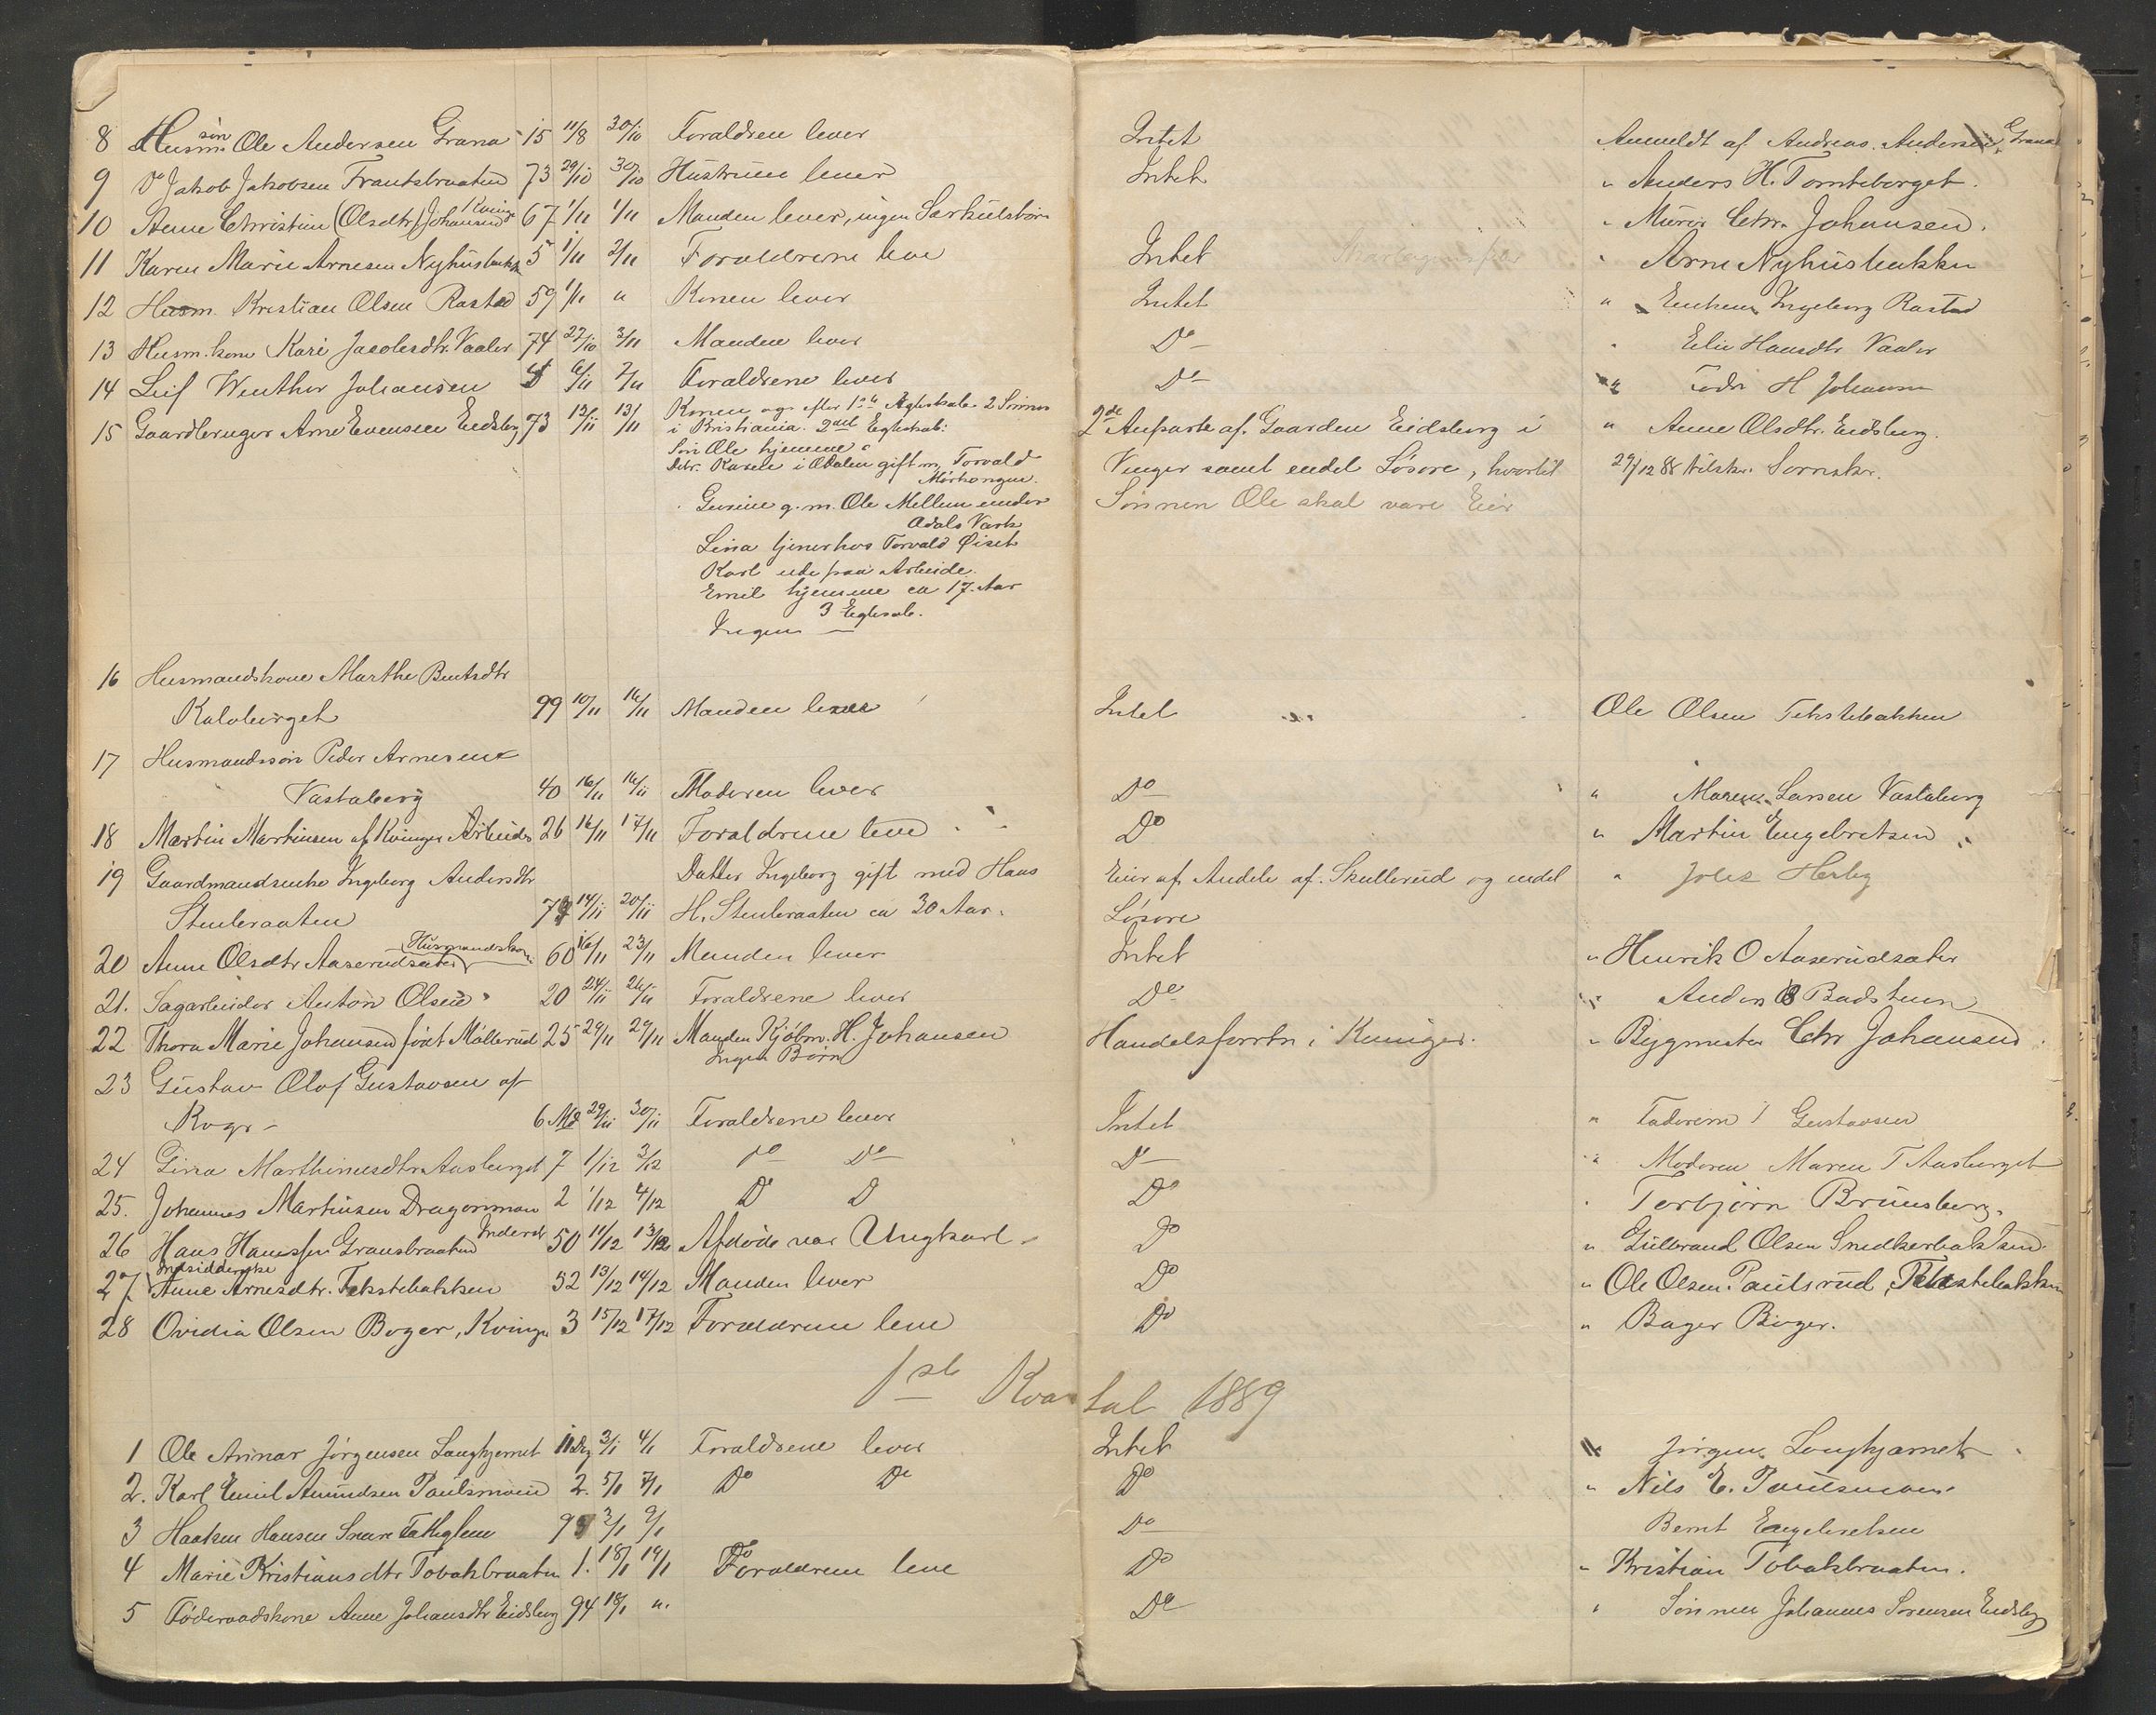 8 Husm. søn Ole Andersen Grana 15 11/8 30/10 Forældrene lever Intet Anmeldt af Andreas Andersen Grana
9 Do Jakob Jakobsen Frantsbraaten 73 29/10 30/10 Hustruen lever Intet " Anders H. Tomteberget.
10 Anne Christine (Olsdtr) Johansen Kvinge 67 1/11 1/11 Manden lever, ingen Særkulsbørn " Murer Chr. Johansen.
11 Karen Marie Arnesen Nyhusbakk 5 1/11 2/11 Forældrene leve Intet " Arne Nyhusbakken
12 Husm. Kristian Olsen Rastad 59 1/11 " Konen lever Intet " Enken Ingeborg Rastad
13 Husm. kone Kari Jacobsdtr. Vaaler 74 27/10 3/11 Manden lever Do " Elie Hansdtr Vaaler
14 Leif Winther Johansen 6/11 7/11 Forældrene lever Do " H Johansen
15 Gaardbruger Arne Evensen Eidsberg 73 12/11 13/11 Konen og efter 1ste Ægteskab 2 Sønner 2de Anparter af Gaarden Eidsberg i " Anne Olsdtr. Eidsberg.
i Kristiania. 2det Egteskab:
Søn Ole hjemme
Dtr. Karele i Odalen gift m. Torvald Vinger samt endel Løsøre, hvortil 29/12 88 tilskr. Sorenskr.
Mørkongen.
Gunine g. m. Ole Mellem under Sønnen Ole skal være Eier
Odals Værk
Lina tjener hos Torvald Øiset
Karl ude paa Arbeide.
Emil hjemme ca 17 Aar
Ingen 3 Egtesk.
16 Husmandskone Marthe Bentsdtr
Kalvberget 99 10/11 16/11 Manden lever Intet Ole Olsen Tekstebakken
17 Husmandssøn Peder Arnesen
Vastaberg 40 16/11 16/11 Moderen lever Do " Maren Larsen Vastaberg
18 Martin Martinsen af Kvinger Arbeider 26 16/11 17/11 Forældrene leve Do " Martin Engebretsen
19 Gaardmandsenke Ingeborg Andersdtr Datter Ingeborg gift med Hans Eier af Andele af Skullerud og endel " Herby
Stenbraaten 14/11 20/11 H. Stenbraaten ca 30 Aar. Løsøre
20 Anne Olsdtr Aaserudsæter Husmandskone 60 16/11 23/11 Manden lever Intet " Henrik O Aaserudsæter
21. Sagarbeider Anton Olsen 20 24/11 26/11 Forældrene lever Do " Anders Badstuen
22 Thora Marie Johansen født Møllerud 25 29/11 29/11 Manden Kjøbm. H. Johansen Handelsforrtn i Kvinger. " Bygmester Chr Johansen
Ingen Børn
23 Gustav Olof Gustavsen af
Roger 6 Md 29/11 30/11 Forældrene lever Intet " Faderen Gustavsen
24 Gina Marthinusdtr Aasberget 7 1/12 3/12 Do Do Do " Moderen Maren T Aasberget
25. Johannes Martinsen Dragonmoen 2 1/12 4/12 Do Do Do " Torbjørn Brunsberg.
26 Hans Hanssen Gransbraaten Inderst 50 11/12 13/12 Afdøde var Ungkarl Do " Gulbrand Olsen Snedkerbakken
27 Indsidderske Anne Arnesdtr. Tekstebakken 52 13/12 14/12 Manden lever Do " Ole Olsen Paulsrud, Tekstebakken
28 Ovidia Olsen Boger, Kvinger 3 15/12 17/12 Forældrene leve Do " Bager Boger.
1ste Kvartal 1889
1 Ole Arinar Jørgensen Langtjernet 11 Dg 3/1 4/1 Forældrene lever Intet " Jørgen Langtjærnet
2. Karl Emil Amundsen Paulsmoen 2. 5/1 7/1 Do Do Do " Nils E. Paulsmoen.
3 Haaken Hansen Snare Fattiglem 3/1 9/1 Do Bernt Engebretsen
4 Marie Kristiansdtr Tobakbraaten 1. 18/1 19/1 Forældrene leve Do " Kristian Tobakbraaten.
5 Føderaadskone Anne Johansdtr Eidsberg 94 18/1 " Do " Sønnen Johannes Sørensen Eidsberg